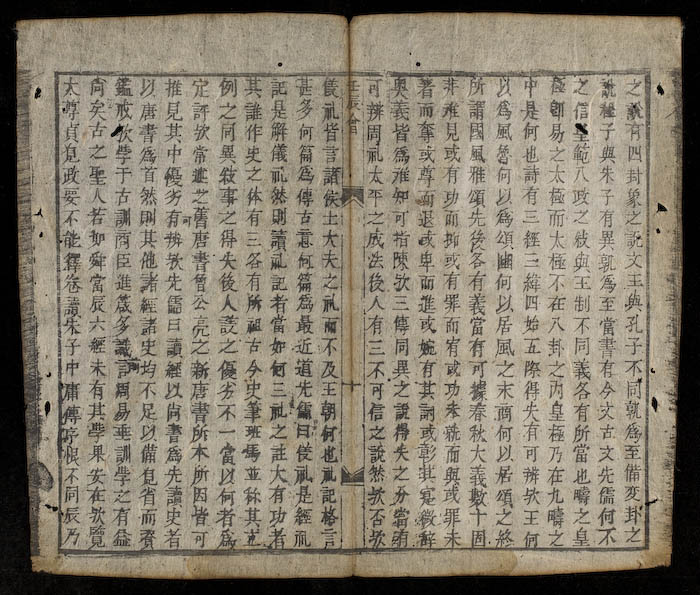 之說有四封象之說文王與孔子不同孰為至備变卦之
說程子與朱子有異孰為至當書有今文古文先儒何不
之信至範八政之敘與王制不同義各有所當也疇之皇
極卽易之太極而太極不在八卦之內皇極乃在九疇之
中是何也詩有三經三緯四始五際得失有可辨欤王何
以為風魯何以為頌豳何以居風之末商何以居頌之終
所謂國風雅頌先後各有義當有可據春秋大義數十固
非难見或有功而抑或有罪而宥或功未就而與或罪未
著而奪或尊而退或卑而進或婉有其詞或彰其寔微辭
奥義皆為难知可指陳欤三傳同異之說得失之分當
可辨周礼太平之成法後人有三不可信之說然欤否欤
壬辰會
十
儀礼皆言諸侯士大夫之礼而不及王朝何也礼記格言
甚多何篇為傳古意何篇為最近道先儒曰儀礼是經礼
記是解儀礼然則讀礼記者當如何三礼之註大有功者
其誰作史之体有三各有所祖古今史筆班馬並稱其立
例之同異敘事之得失後人議之優劣不一當以何者為
定評欤常進之舊唐書曾公亮之新唐書所本所因皆可
可
推見其中優劣有辨欤先儒曰讀經以尚書為先讀史者
以唐書為首然則其他諸經諸史均不足以備見省而資
鑑戒欤學于古訓商臣進箴多識言周易垂訓學之有益
尚矣古之聖人若如舜當辰六經未有其學果安在欤覽
太尊貞見政要不能釋卷讀朱子中庸傳序恨不同辰乃